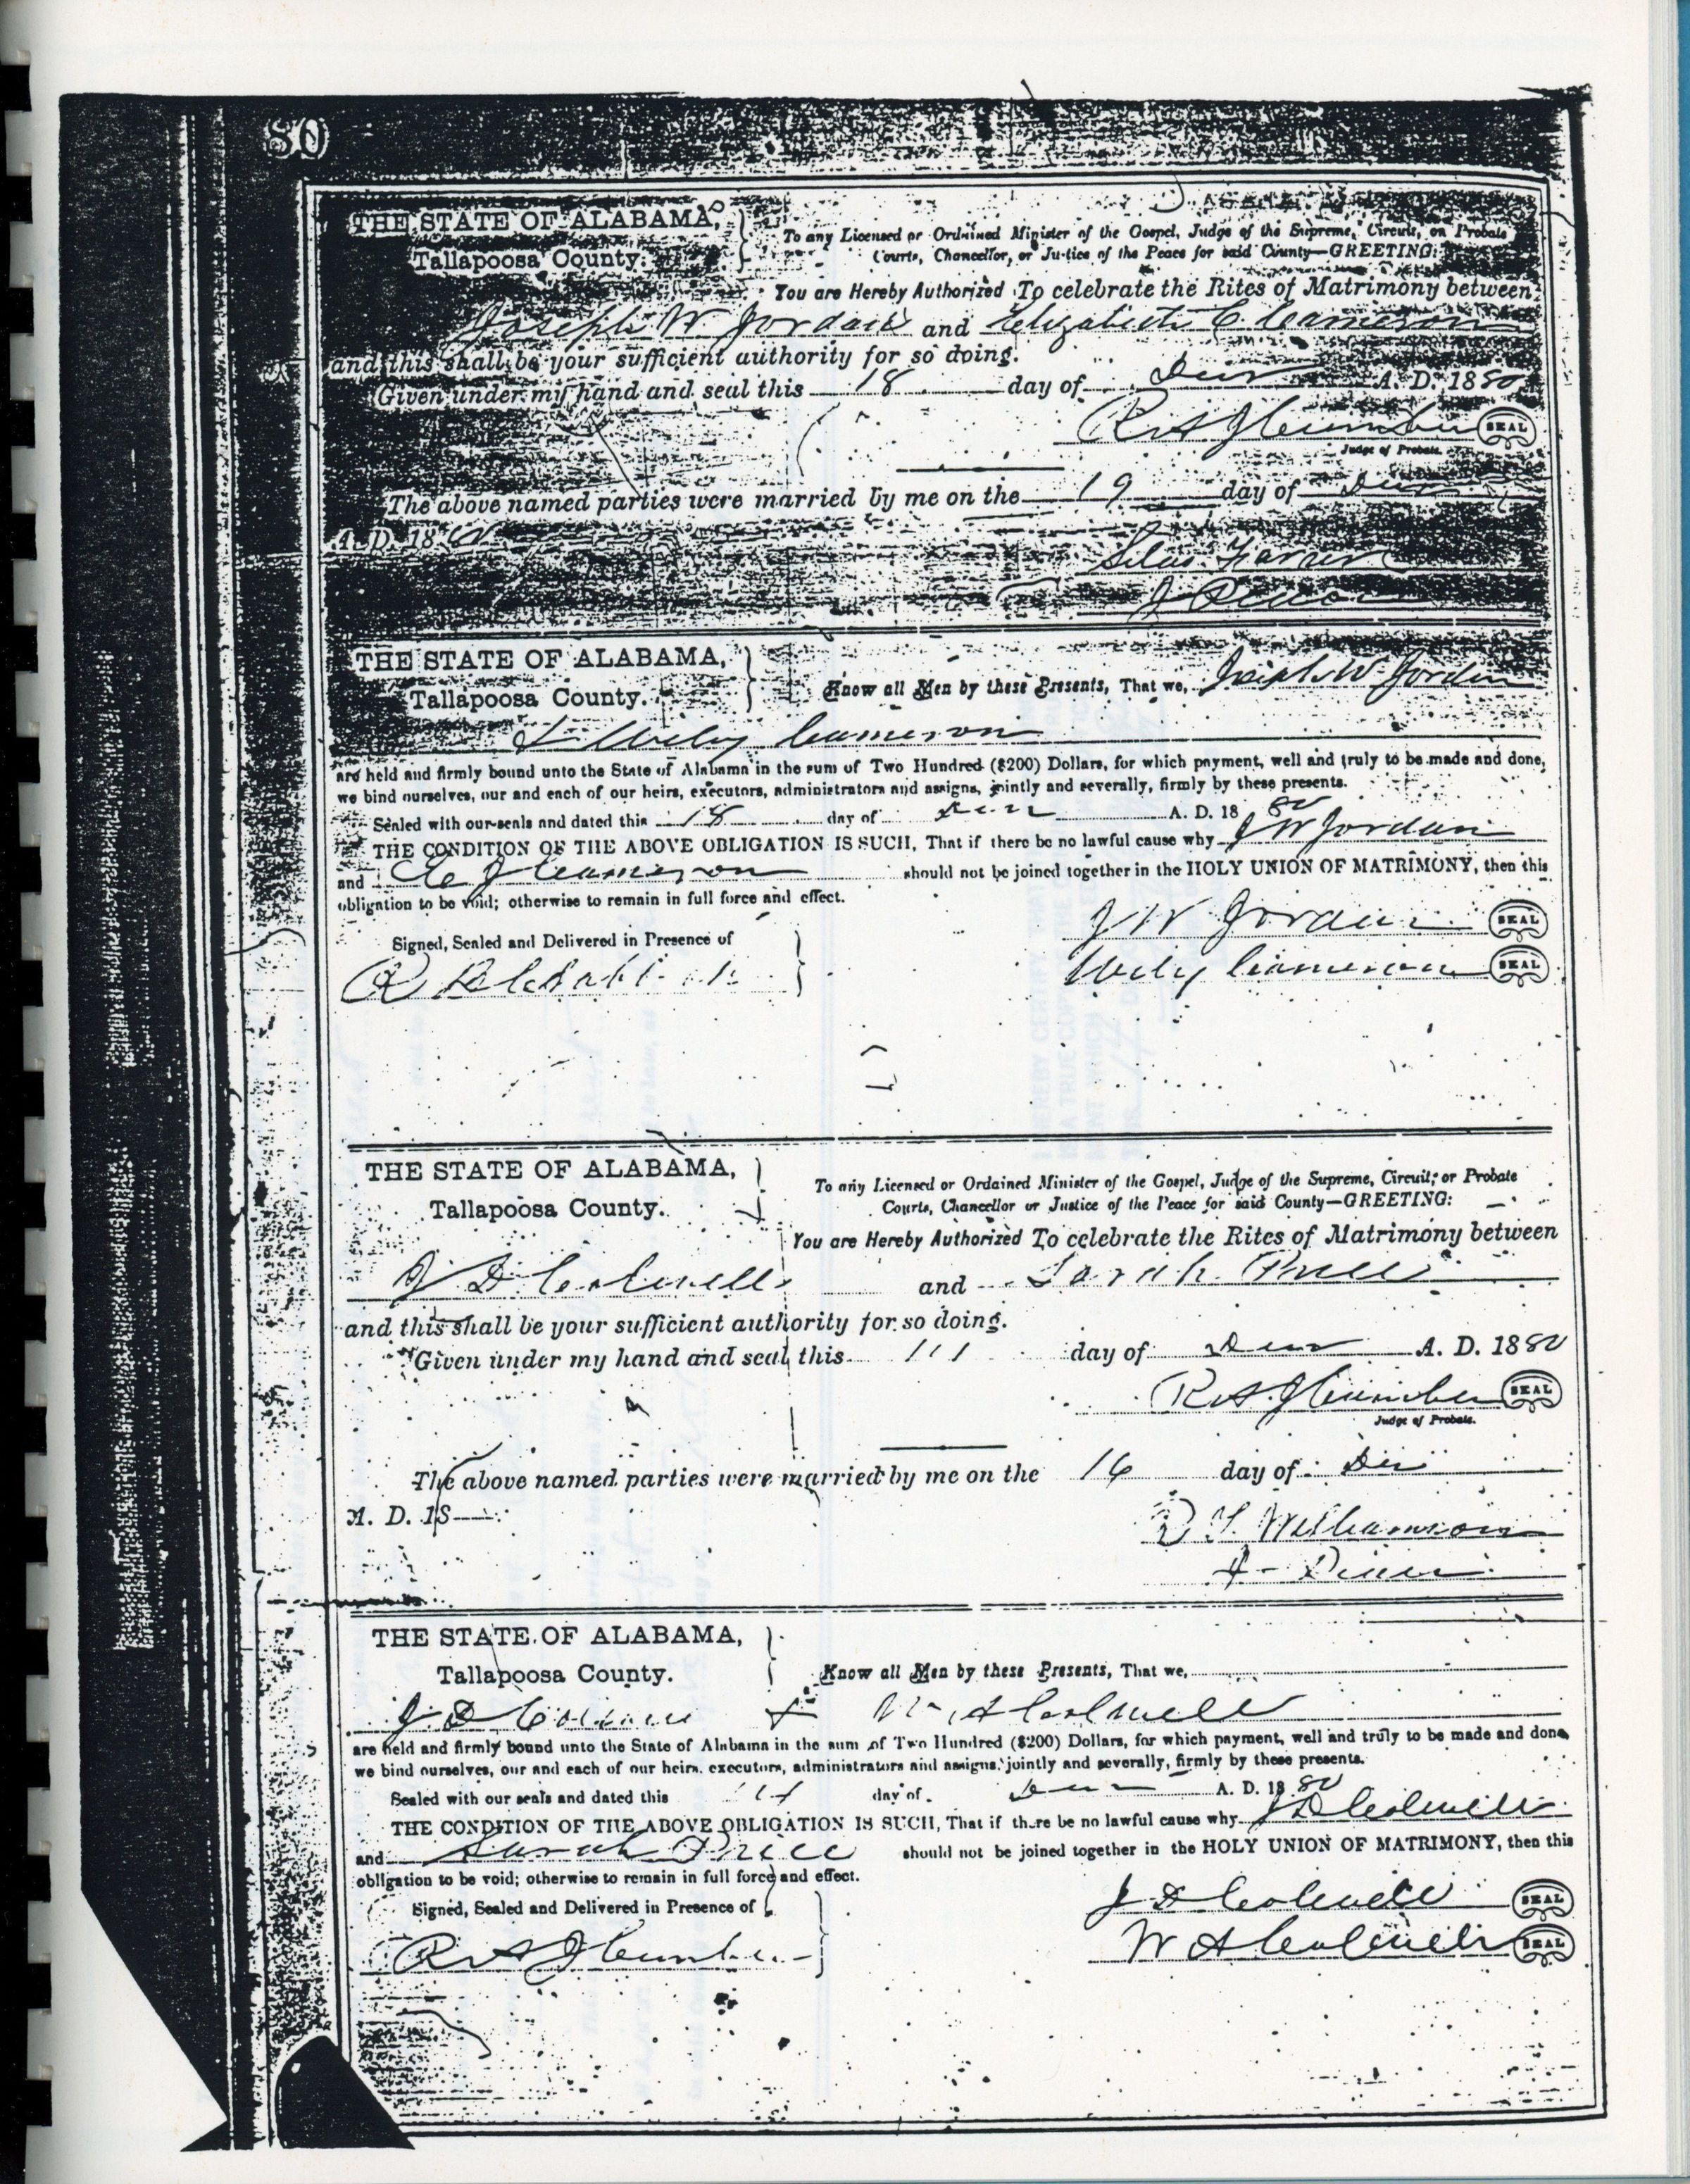 80
THE STATE OF ALABAMA,
Tallapoosa County.
To any Licensed or Ordained Minister of the Gospel, Judge of the Supreme, Circuit, or Probate
Courts, Chancellor, or Justice of the Peace for said County—GREETING:
You are Hereby Authorized To celebrate the Rites of Matrimony between
Joseph W Jordan and Elizabeth C Cameron
and this shall be your sufficient authority for so doing.
Given under my hand and seal this 18 day of A. D. 1880
SEAL
Judge of Probate.
The above named parties were married by me on the 19 day of
A. D. 18
THE STATE OF ALABAMA,
Tallapoosa County.
Know all Men by these Presents, That we, Joseph W Jordan
Wiley Cameron
are held and firmly bound unto the State of Alabama in the sum of Two Hundred ($200) Dollars, for which payment, well and truly to be made and done,
we bind ourselves, our and each of our heirs, executors, administrators and assigns, jointly and severally, firmly by these presents.
Sealed with our seals and dated this 18 day of A. D. 18 80
THE CONDITION OF THE ABOVE OBLIGATION IS SUCH, That if there be no lawful cause why J W Jordan
and Cameron should not be joined together in the HOLY UNION OF MATRIMONY, then this
obligation to be void; otherwise to remain in full force and effect.
Signed, Sealed and Delivered in Presence of
J W Jordan SEAL
Wiley Cameron SEAL
THE STATE OF ALABAMA,
Tallapoosa County.
To any Licensed or Ordained Minister of the Gospel, Judge of the Supreme, Circuit, or Probate
Courts, Chancellor or Justice of the Peace for said County—GREETING:
You are Hereby Authorized To celebrate the Rites of Matrimony between
J D Colwell and Sarah Price
and this shall be your sufficient authority for so doing.
Given under my hand and seal this day of A. D. 1880
SEAL
Judge of Probate.
The above named parties were married by me on the 16 day of
A. D. 18
Williamson
THE STATE OF ALABAMA,
Tallapoosa County.
Know all Men by these Presents, That we,
J D W A Colwell
are held and firmly bound unto the State of Alabama in the sum of Two Hundred ($200) Dollars, for which payment, well and truly to be made and done,
we bind ourselves, our and each of our heirs, executors, administrators and assigns, jointly and severally, firmly by these presents.
Sealed with our seals and dated this day of A. D. 18 80
THE CONDITION OF THE ABOVE OBLIGATION IS SUCH, That if there be no lawful cause why J D Colwell
and Sarah Price should not be joined together in the HOLY UNION OF MATRIMONY, then this
obligation to be void; otherwise to remain in full force and effect.
Signed, Sealed and Delivered in Presence of
J D Colwell SEAL
W A Colwell SEAL